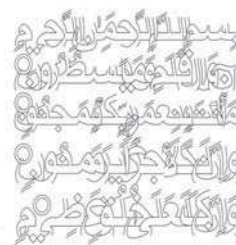 بسم الله الرحمن الرحيم
ن والقلم وما يسطرون
ما أنت بنعمة ربك بمجنون
وإن لك لأجرا غير ممنون
وإنك لعلى خلق عظيم